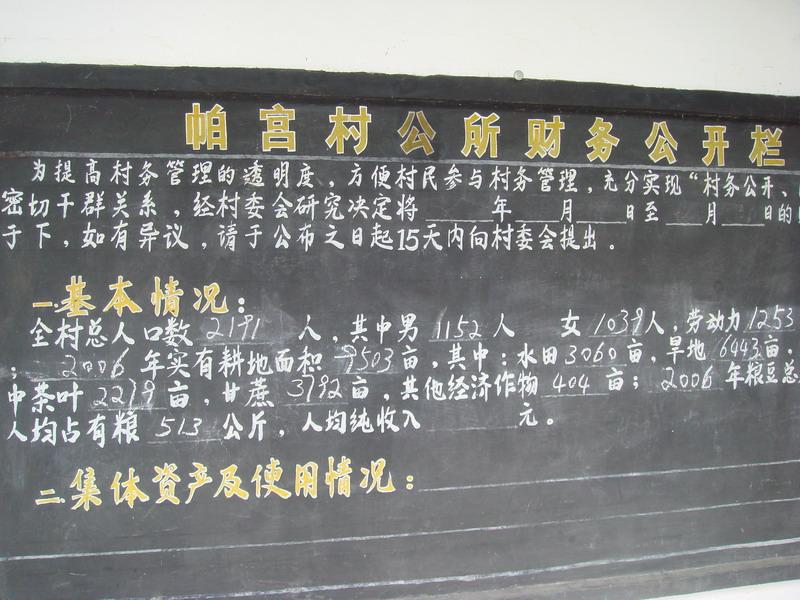 帕宫村公所财务公开栏
为提高村务管理的透明度，方便村民参与村务管理，充分实现“村务公开、
密切干群关系，经村委会研究决定将____年____月____日至____月____日的
于下，如有异议，请于公布之日起15天内向村委会提出。
一.基本情况：
全村总人口数 2191 人，其中男 1152 人 女 1039人，劳动力1253
；2006 年实有耕地面积 9503亩，其中：水田3060亩，旱地 6443亩，
中茶叶 2279 亩，甘蔗 3792 亩，其他经济作物 404 亩；2006 年粮豆总
人均占有粮 513 公斤，人均纯收入____元。
二.集体资产及使用情况：